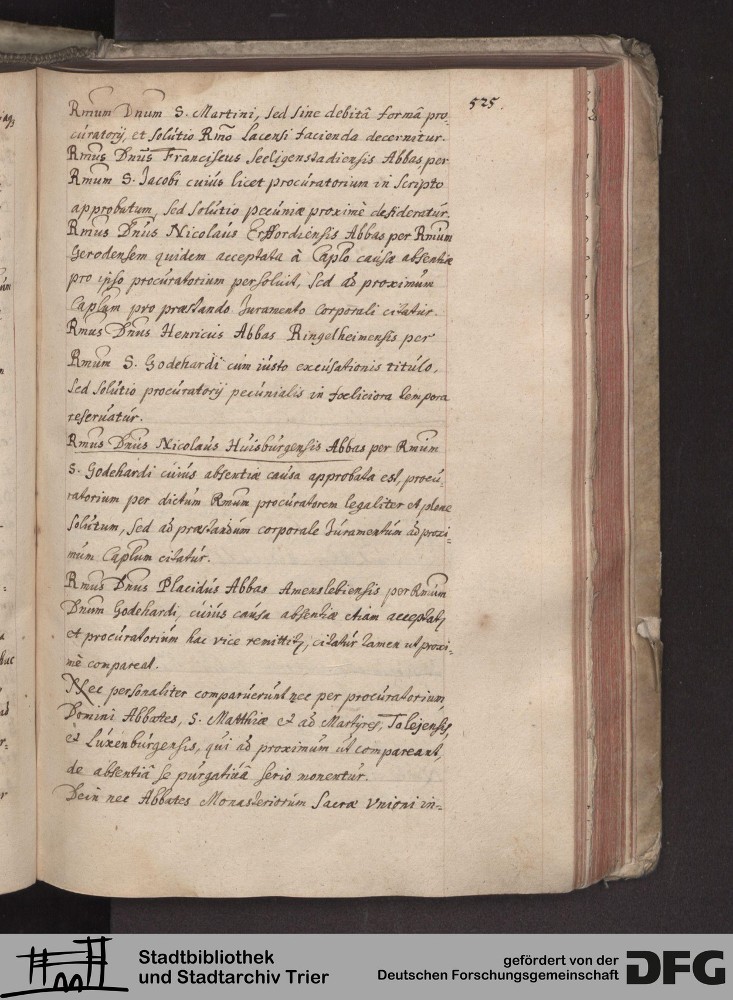 525.
Rmum Dnum S. Martini, sed sine debitâ formâ pro
curatorij, et solutio Rmo Lacensi facienda decernitur.
Rmus Dnus Franciscus Seeligenstadiensis Abbas per
Rmum S. Jacobi cuius licet procuratorium in scripto
approbatum, sed solutio pecuniæ proximè desideratur.
Rmus Dnus Nicolaus Erffordiensis Abbas per Rmum
Gerodensem quidem acceptata à Caplo causæ absentiæ
pro ipso procuratorium persoluit, sed ad proximum
Caplum pro præstando Juramento corporali citatur.
Rmus Dnus Henricus Abbas Ringelheimensis per
Rmum S. Godehardi cum iusto excusationis titulo,
sed solutio procuratorij pecunialis in fœliciora tempora
reseruatur.
Rmus Dnus Nicolaus Huisburgensis Abbas per Rmum
S. Godehardi cuius absentiæ causa approbata est, procu
ratorium per dictum Rmum procuratorem legaliter et plene
solutum, sed ad præstandum corporale Juramentum ad proxi=
mum Caplum citatur.
Rmus Dnus Placidus Abbas Amenslebiensis per Rmum
Dnum Godehardi, cuius causa absentiæ etiam acceptatr
et procuratorium hac vice remittitr, citatur tamen ut proxi=
mè compareat.
Nec personaliter comparuerunt nec per procuratorium
Domini Abbates, S. Matthiæ et ad Martyres, Tolejensis,
et Luxenburgensis, qui ad proximum ut compareant,
de absentiâ se purgatiuâ serio monentur.
Dein nec Abbates Monasteriorum Sacræ Vnioni in=
Stadtbibliothek
und Stadtarchiv Trier
gefördert von der
Deutschen Forschungsgemeinschaft
DFG